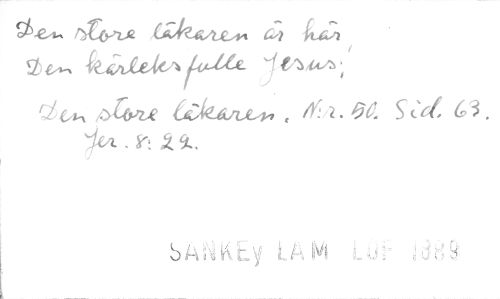 Den store läkaren är här,
Den kärleksfulle Jesus;
Den store läkaren. N:r. 50. Sid. 63.
Jer. 8: 22.
SANKEY LAM LOF 1889